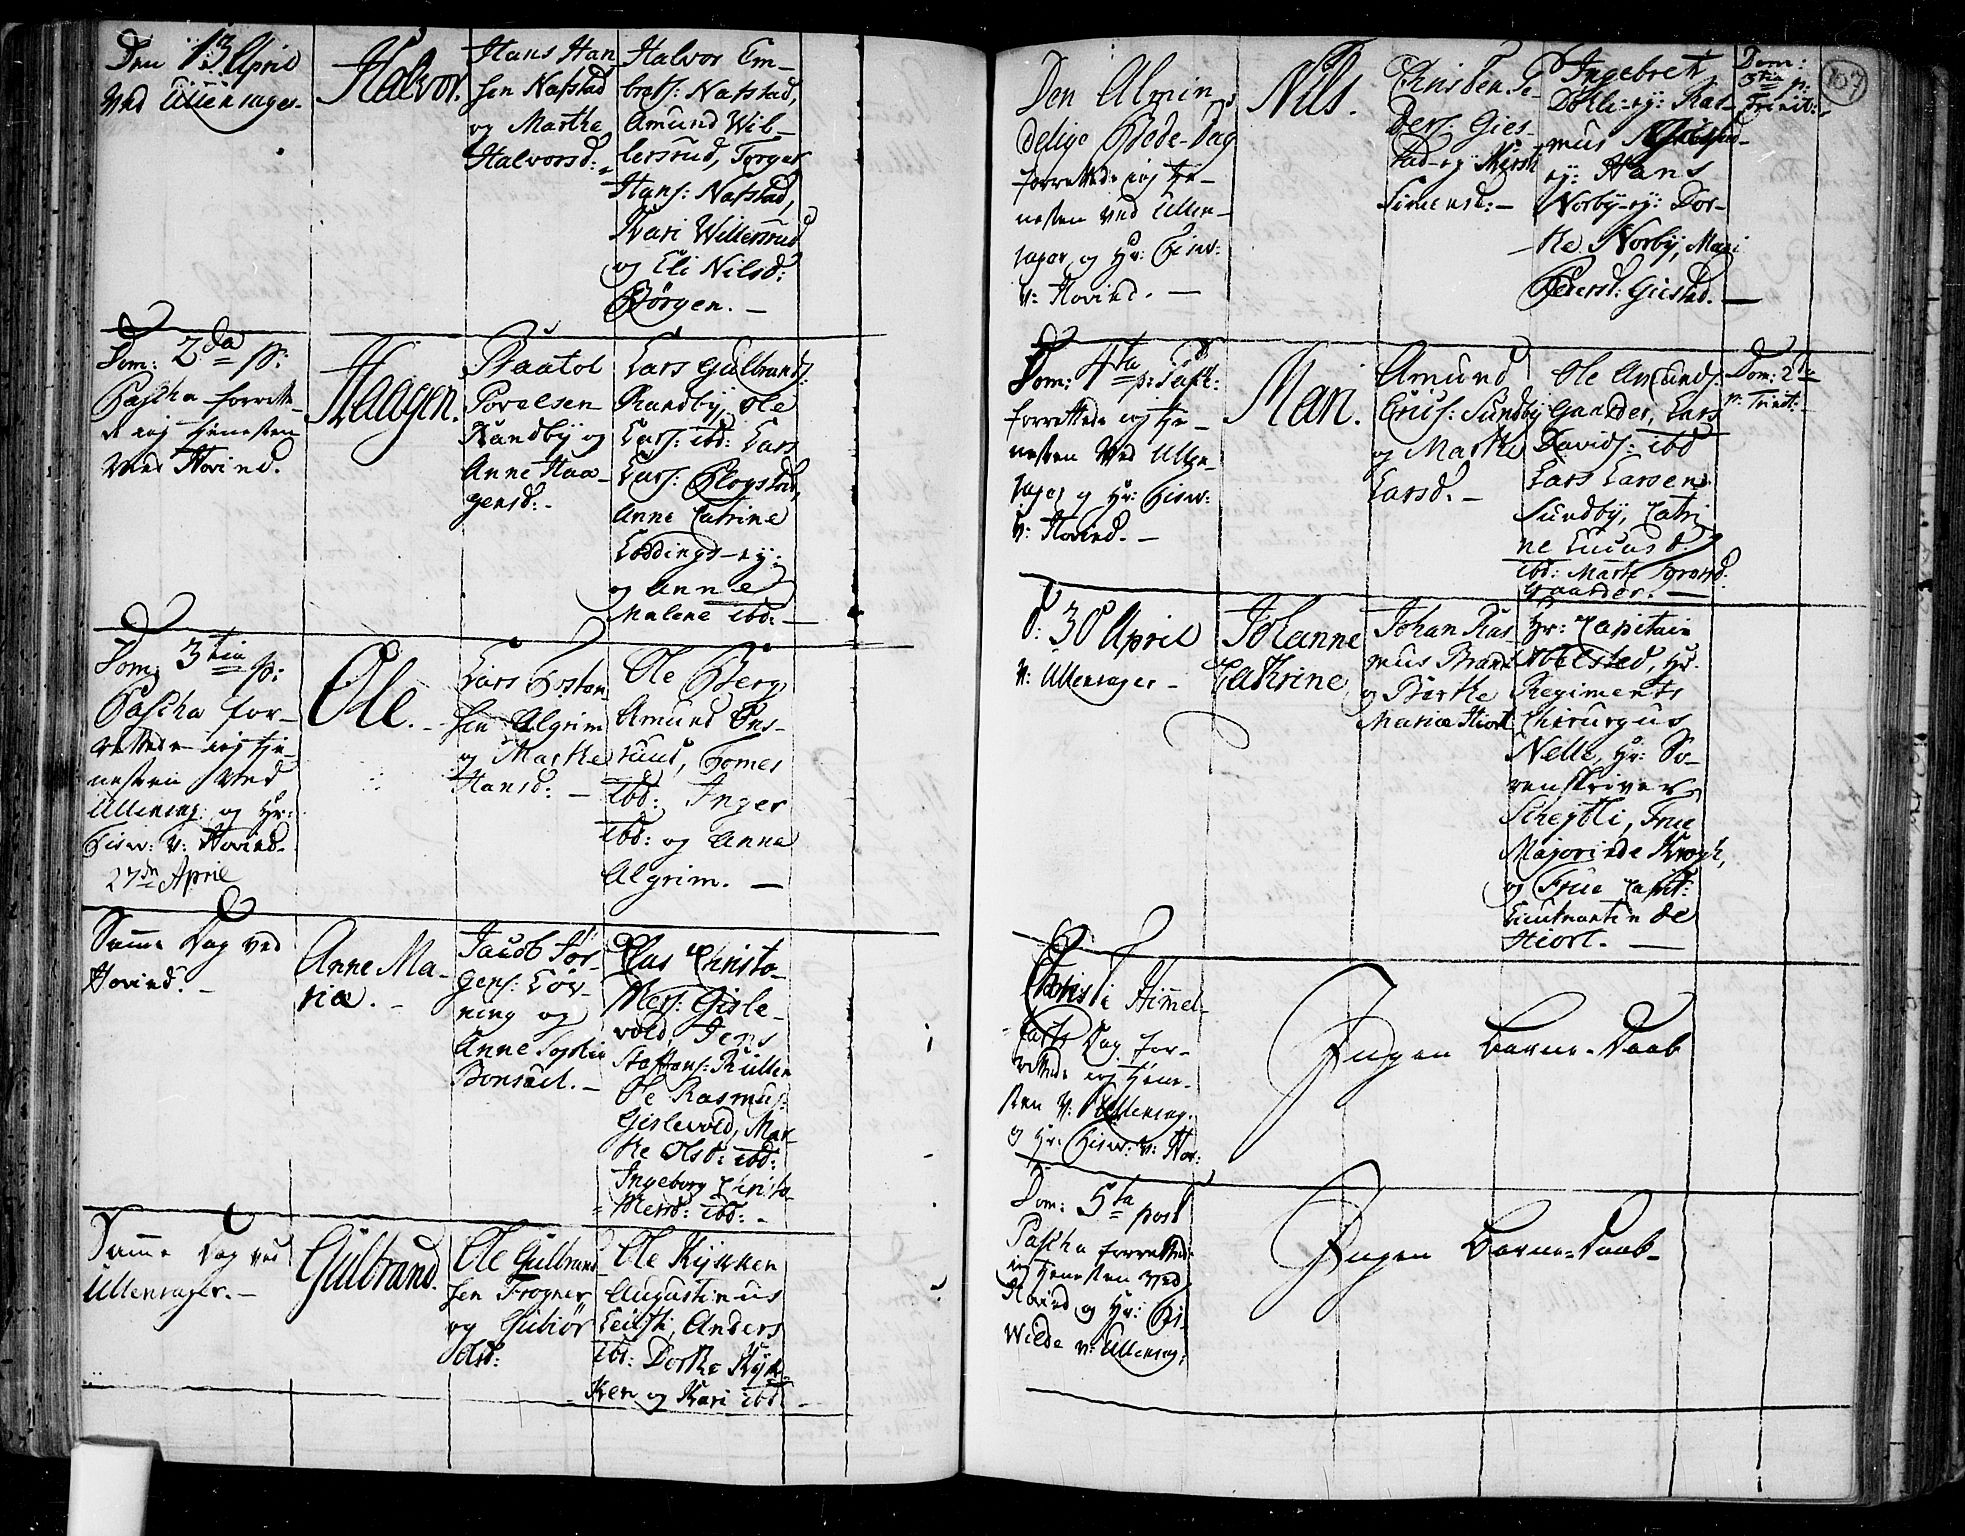 Den 13 April
ved Ullensager.
Halvor.
Hans Han
sen Nafstad
og Marthe
Halvorsd:
Halvor Em-
bretf: Nafstad,
Amund Wil-
lersrud, Torger
Hansf: Nafstad,
Kari Willersrud
og Eli Nilsd:
Børgen. -
Dom: 2da p:
Pascha forrette-
de ieg tienesten
ved Hovind.
Haagen.
Povelsen
Randby og
Anne Haa-
gensd: -
Lars Gulbrandf:
Randby, Ole
Larsf: ibd: Lars
Larsf: Clogstad,
Anne Catrine
Loddings-ey:
og Anne
Malene ibd: -
Dom: 3tia p:
Pascha for-
rettede ieg tie-
nesten ved
Ullensag: og Hr:
v: Hovind.
27de April
Ole. -
Lars
sen Algrim
og Marthe
Hansd: -
Ole Berg
Amund Øns-
ruud, Tomes
ibd: Inger
ibd: og Anne
Algrim. -
Samme Dag ved
Hovind. -
Anne Ma-
ria. -
Jacob Jør-
gensf: Løv-
ning og
Anne Sophia
Bonsael. -
Elias Christo-
phersf: Gisle-
vold, Jens
Staffensf: Rullen
Ole Rasmusf:
Gislevold, Mar-
the Olsd: ibd:
Ingeborg Christo-
phersd: ibd: -
Samme Dag ved
Ullensager. -
Gulbrand.
Ole Gulbrand
sen Frogner
og Gubiør
Olsd:
Ole Kykken
Augustinus
Leuthi, Anders
ibd: Dorthe Kyk-
ken og Kari ibd: -
107
Den Almin
delige Bede-Dag
forrettede ieg tie-
nesten ved Ullen-
sager og Hr:
v: Hovind. -
Nils.
Christen Pe-
dersf: Gies-
tad-ey: Kirsti
Simensd: -
Ingebret
Dohli-ey: Ras-
mus
ey: Hans
Norby-ey: Dor-
the Norby, Mari
Pedersd: Giestad. -
Dom:
3tia p:
Trinit: -
Dom: 4ta p: Pasch:
forrettede ieg tie-
nesten ved Ullen-
sager og Hr:
v: Hovind. -
Mari.
Amund
Sundby
og Marthe
Larsd. -
Ole Amundf:
Gaarder, Lars
Davidsf: ibd
Lars Larsen
Sundby, Catri
ne Lucas d:
ibd: Marte
Gaarder. -
Dom: 2da
p: Trinit: -
d: 30 April
v: Ullensager -
Johanne
Cathrine
Johan Ras
mus Brandt
og Birthe
Maria Hiort
Hr: Capitain
Abelsted, Hr:
Regiments
Chirurgus
Nelle, Hr: So-
renskriver
Scheytli, Frue
Majorinde Krogh,
og Frue Capit:
Lieutnantinde
Hiort. -
Christi Himmel-
farts Dag for-
rettede ieg tiene-
sten v: Ullensag.
og Hr: v: Hov:
Ingen Barne-Daab
Dom: 5ta post
Pascha forrettede
ieg tienesten ved
Hovind og Hr:
Wilde v: Ullensag:
Ingen Barne-Daab-